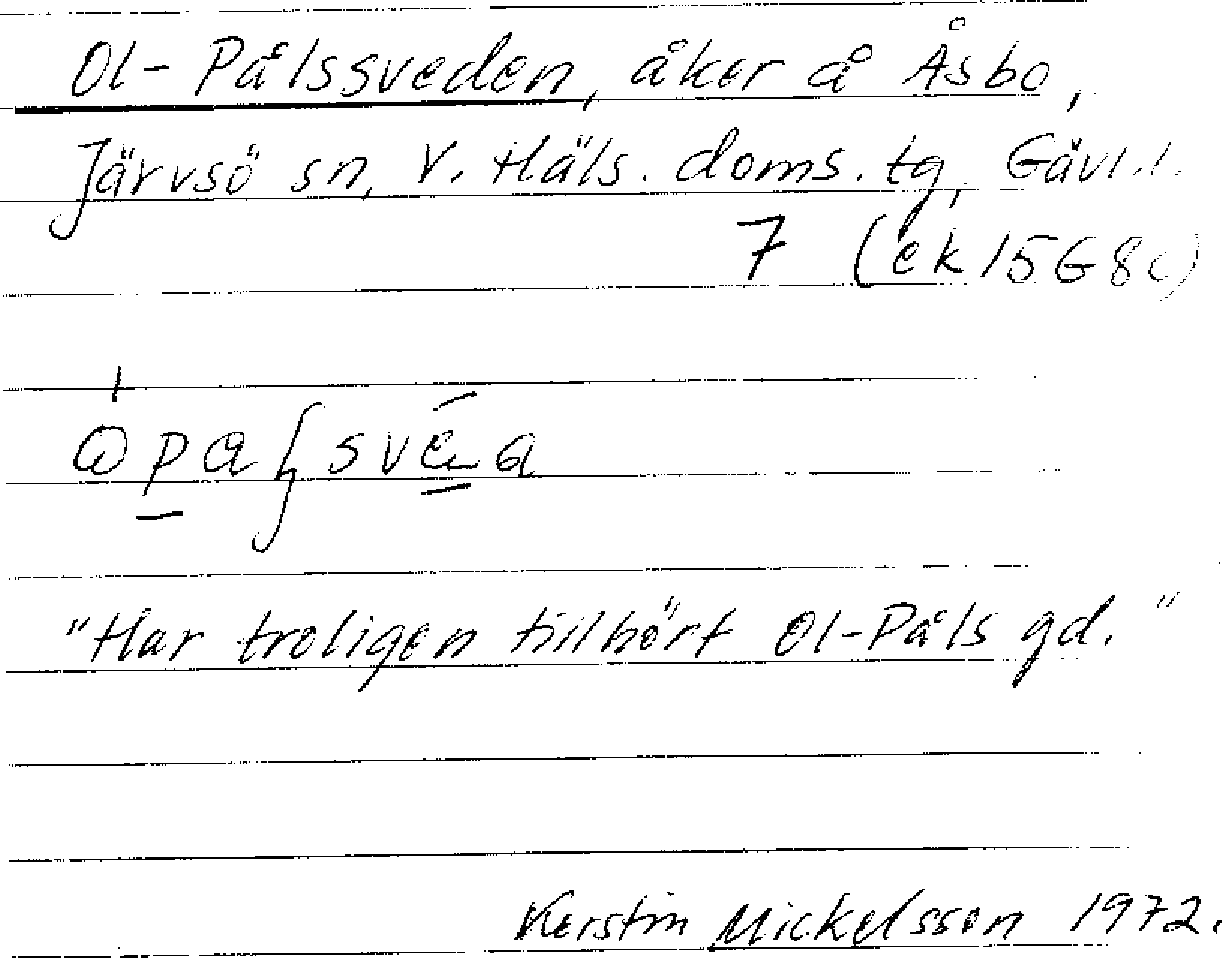 Ol-Pålssveden, åker å Åsbo,
Järvsö sn, V. Häls. doms. tg, Gävl.l.
7 (ek 15G8c)
"Har troligen tillhört Ol-Påls gd."
Kerstin Mickelsson 1972.